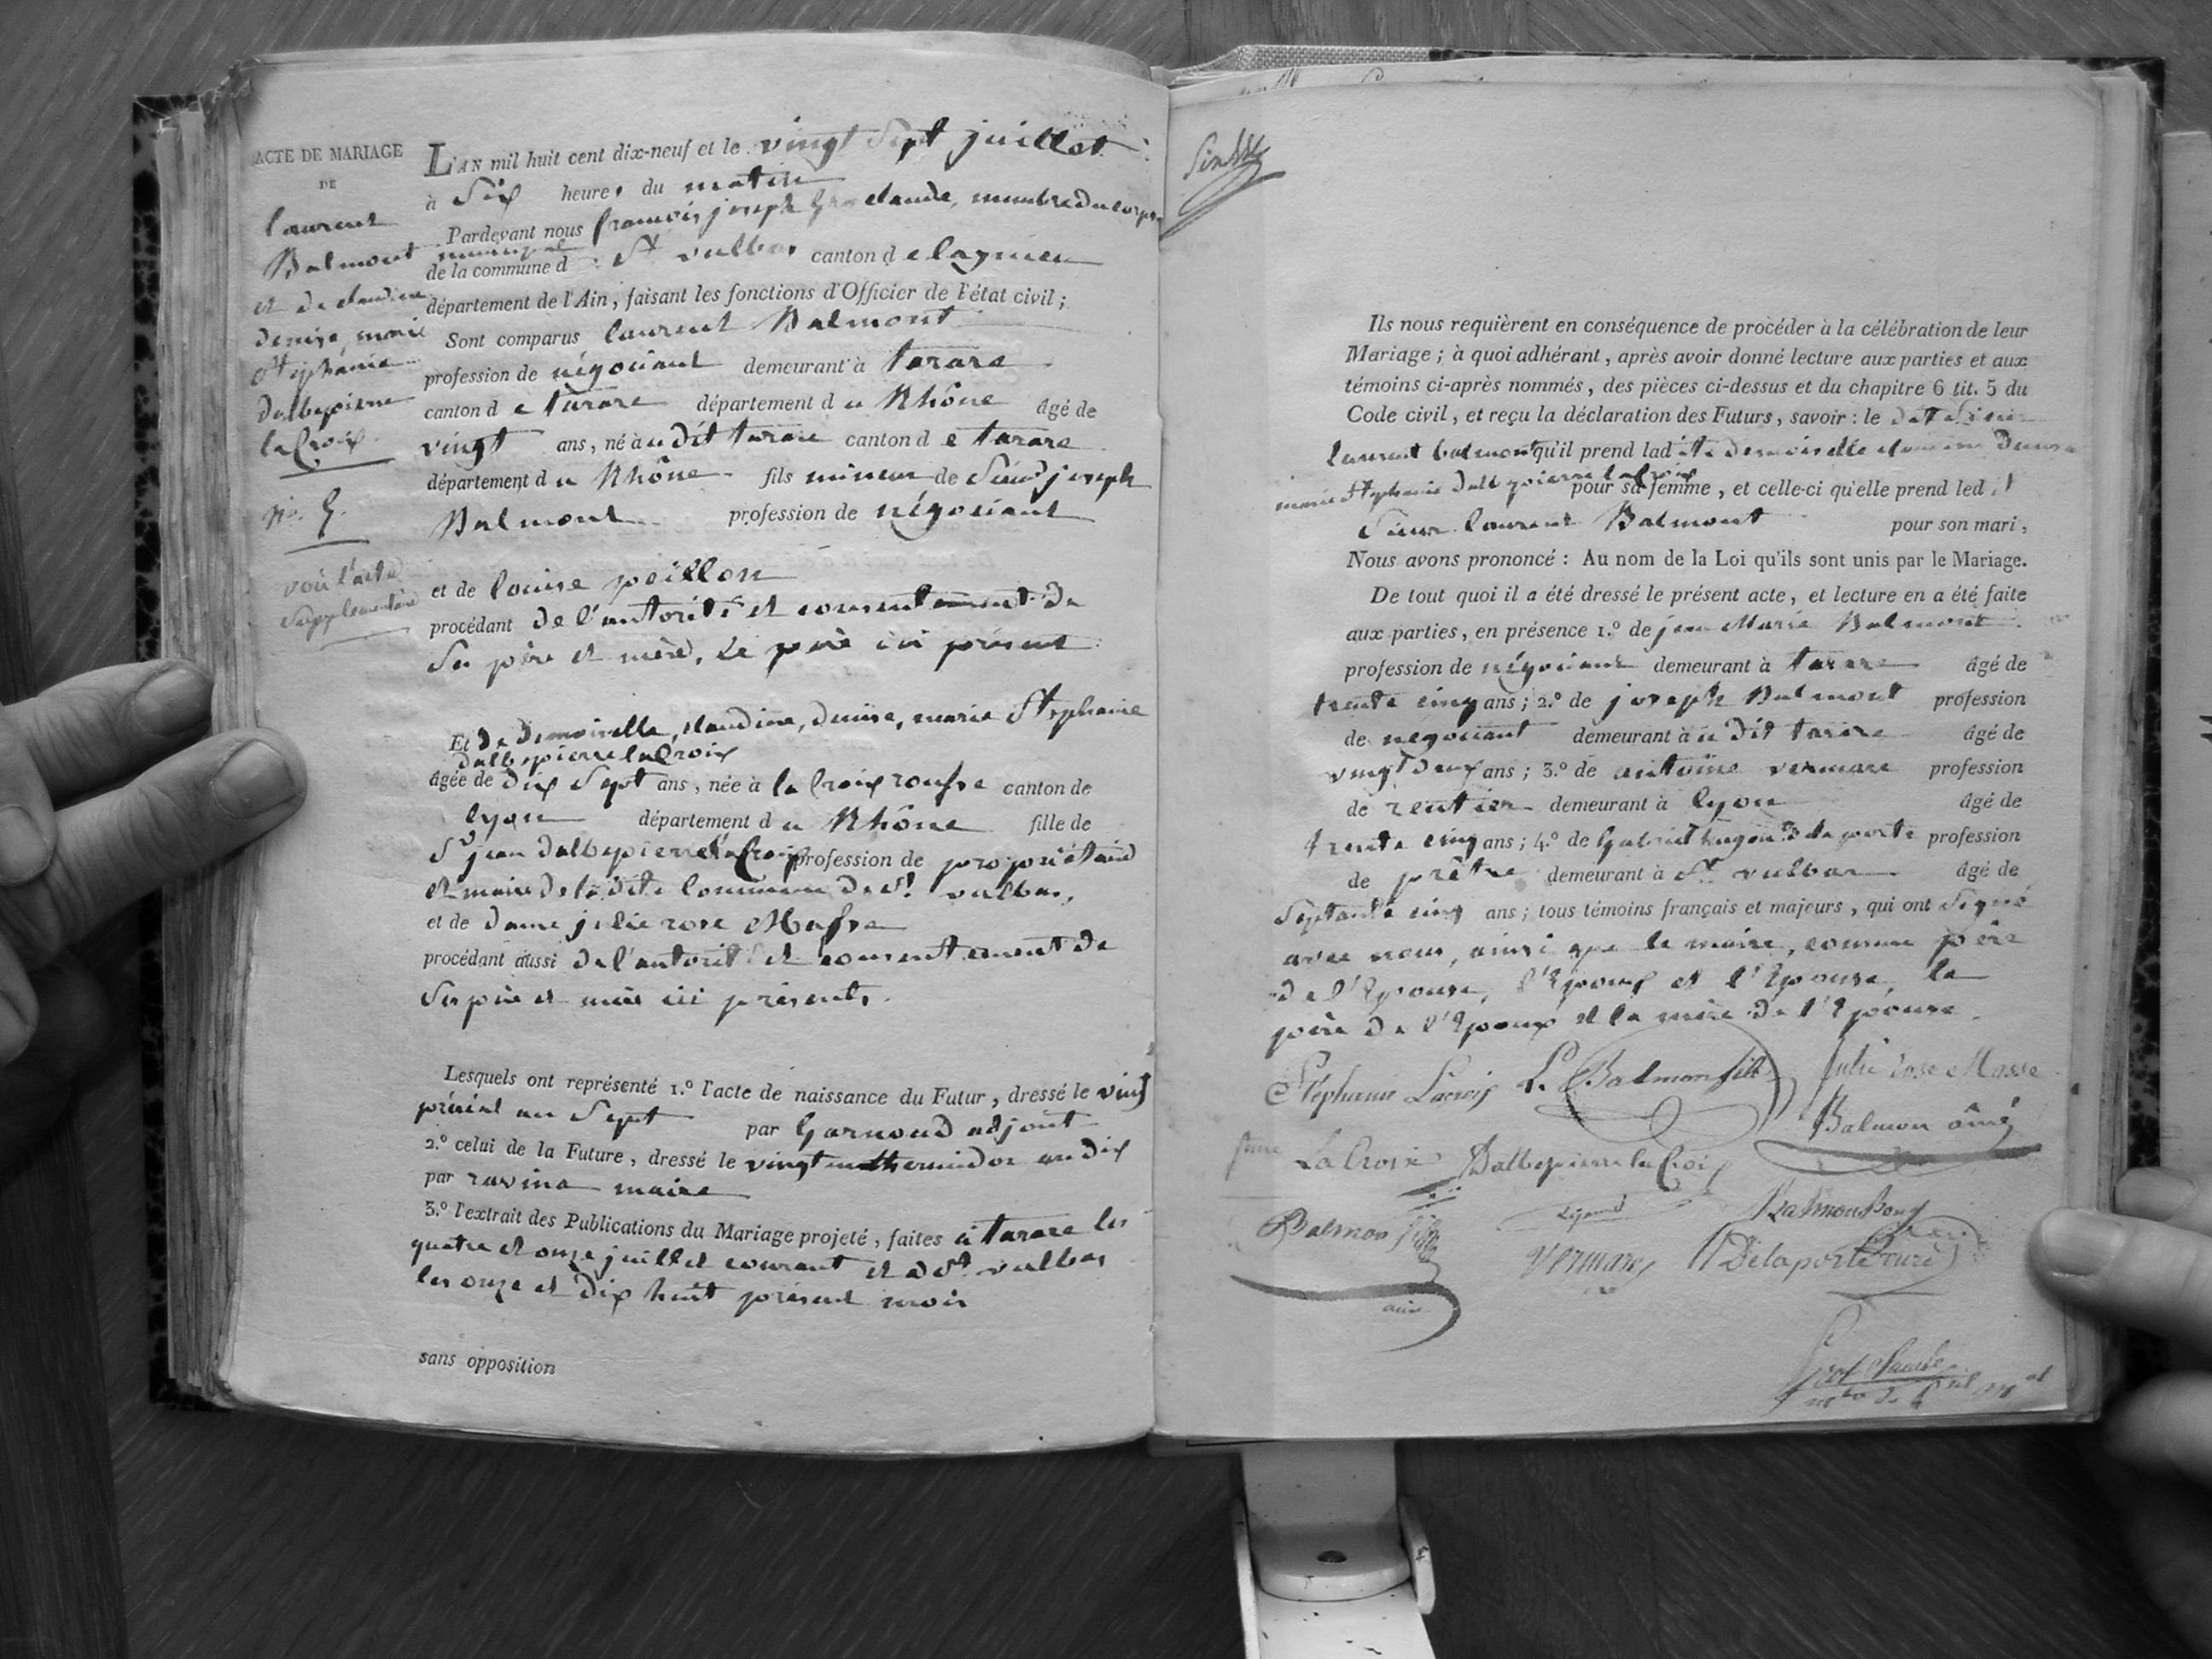 ACTE DE MARIAGE
DE
laurent
Balmont
et de claudine
denise, marie
Stéphanie
dalbepierre
laCroix
No. 5.
voir l'acte
Supplementaire
L'AN mil huit cent dix-neuf et le vingt Sept juillet
à Six heures du matin
Pardevant nous françois joseph Gros claude, membre du corps
municipal
de la commune d St vulbas canton de lagnieu
département de l'Ain, faisant les fonctions d'Officier de l'état civil ;
Sont comparus laurent Balmont
profession de négociant demeurant à tarare
canton de tarare département du Rhône âgé de
vingt ans, né audit tarare canton de tarare
département du Rhône fils mineur de Sieur joseph
Balmont profession de négociant
et de louise peillon
procédant de l'autorité et consentement de
Ses père et mère, le père ici présent
Et de Demoiselle, claudine, denise, marie Stephanie
dalbepierre laCroix
âgée de dix Sept ans, née à la Croix rousse canton de
lyon département du Rhône fille de
Sr jean dalbepierre laCroix profession de propriétaire
et maire de la dite Commune de St vulbas,
et de dame julie rose Masse
procédant aussi de l'autorité et consentement de
Ses père et mère ici présents.
Lesquels ont représenté 1.º l'acte de naissance du Futur, dressé le vingt
prairial an Sept par Garnoud adjoint
2.º celui de la Future, dressé le vingt un thermidor an dix
par ravina maire
3.º l'extrait des Publications du Mariage projeté, faites à tarare les
quatre et onze juillet courant et a St vulbas
les onze et dix huit présent mois
sans opposition
Ils nous requièrent en conséquence de procéder à la célébration de leur
Mariage ; à quoi adhérant, après avoir donné lecture aux parties et aux
témoins ci-après nommés, des pièces ci-dessus et du chapitre 6 tit. 5 du
Code civil, et reçu la déclaration des Futurs, savoir : le dit Sieur
laurent balmont qu'il prend ladite demoiselle claudine Denise
marie Stephanie dalbepierre laCroix
pour sa femme, et celle-ci qu'elle prend ledit
Sieur laurent Balmont pour son mari,
Nous avons prononcé : Au nom de la Loi qu'ils sont unis par le Mariage.
De tout quoi il a été dressé le présent acte, et lecture en a été faite
aux parties, en présence 1.º de jean Marie Balmont
profession de négociant demeurant à tarare âgé de
trente cinq ans ; 2.º de joseph Balmont profession
de négociant demeurant à u dit tarare âgé de
vingt deux ans ; 3.º de antoine vermare profession
de rentier demeurant à lyon âgé de
trente cinq ans ; 4.º de Gabriel hugon delaporte profession
de prêtre demeurant à St vulbas âgé de
Septante cinq ans ; tous témoins français et majeurs, qui ont Signé
avec nous, ainsi que le maire, comme père
de l'Epouse, l'Epoux et l'Epouse, le
père de l'Epoux et la mère de l'Epouse.
Stéphanie Lacroix L. Balmon fils Julie rose Masse
Balmon aîné
LaCroix Dalbepierre laCroix
Balmon fils
aîné
Vermare Delaporte curé
Gros claude